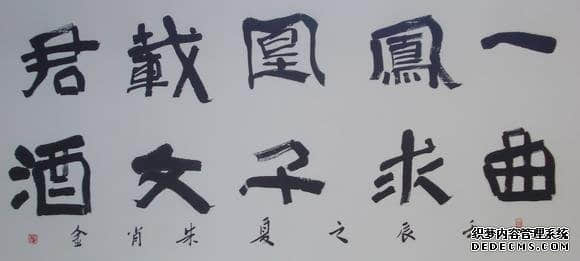 一曲
鳳求
凰千
載文
君酒
辰之夏朱肖金
织梦内容管理系统
DEDECMS.COM